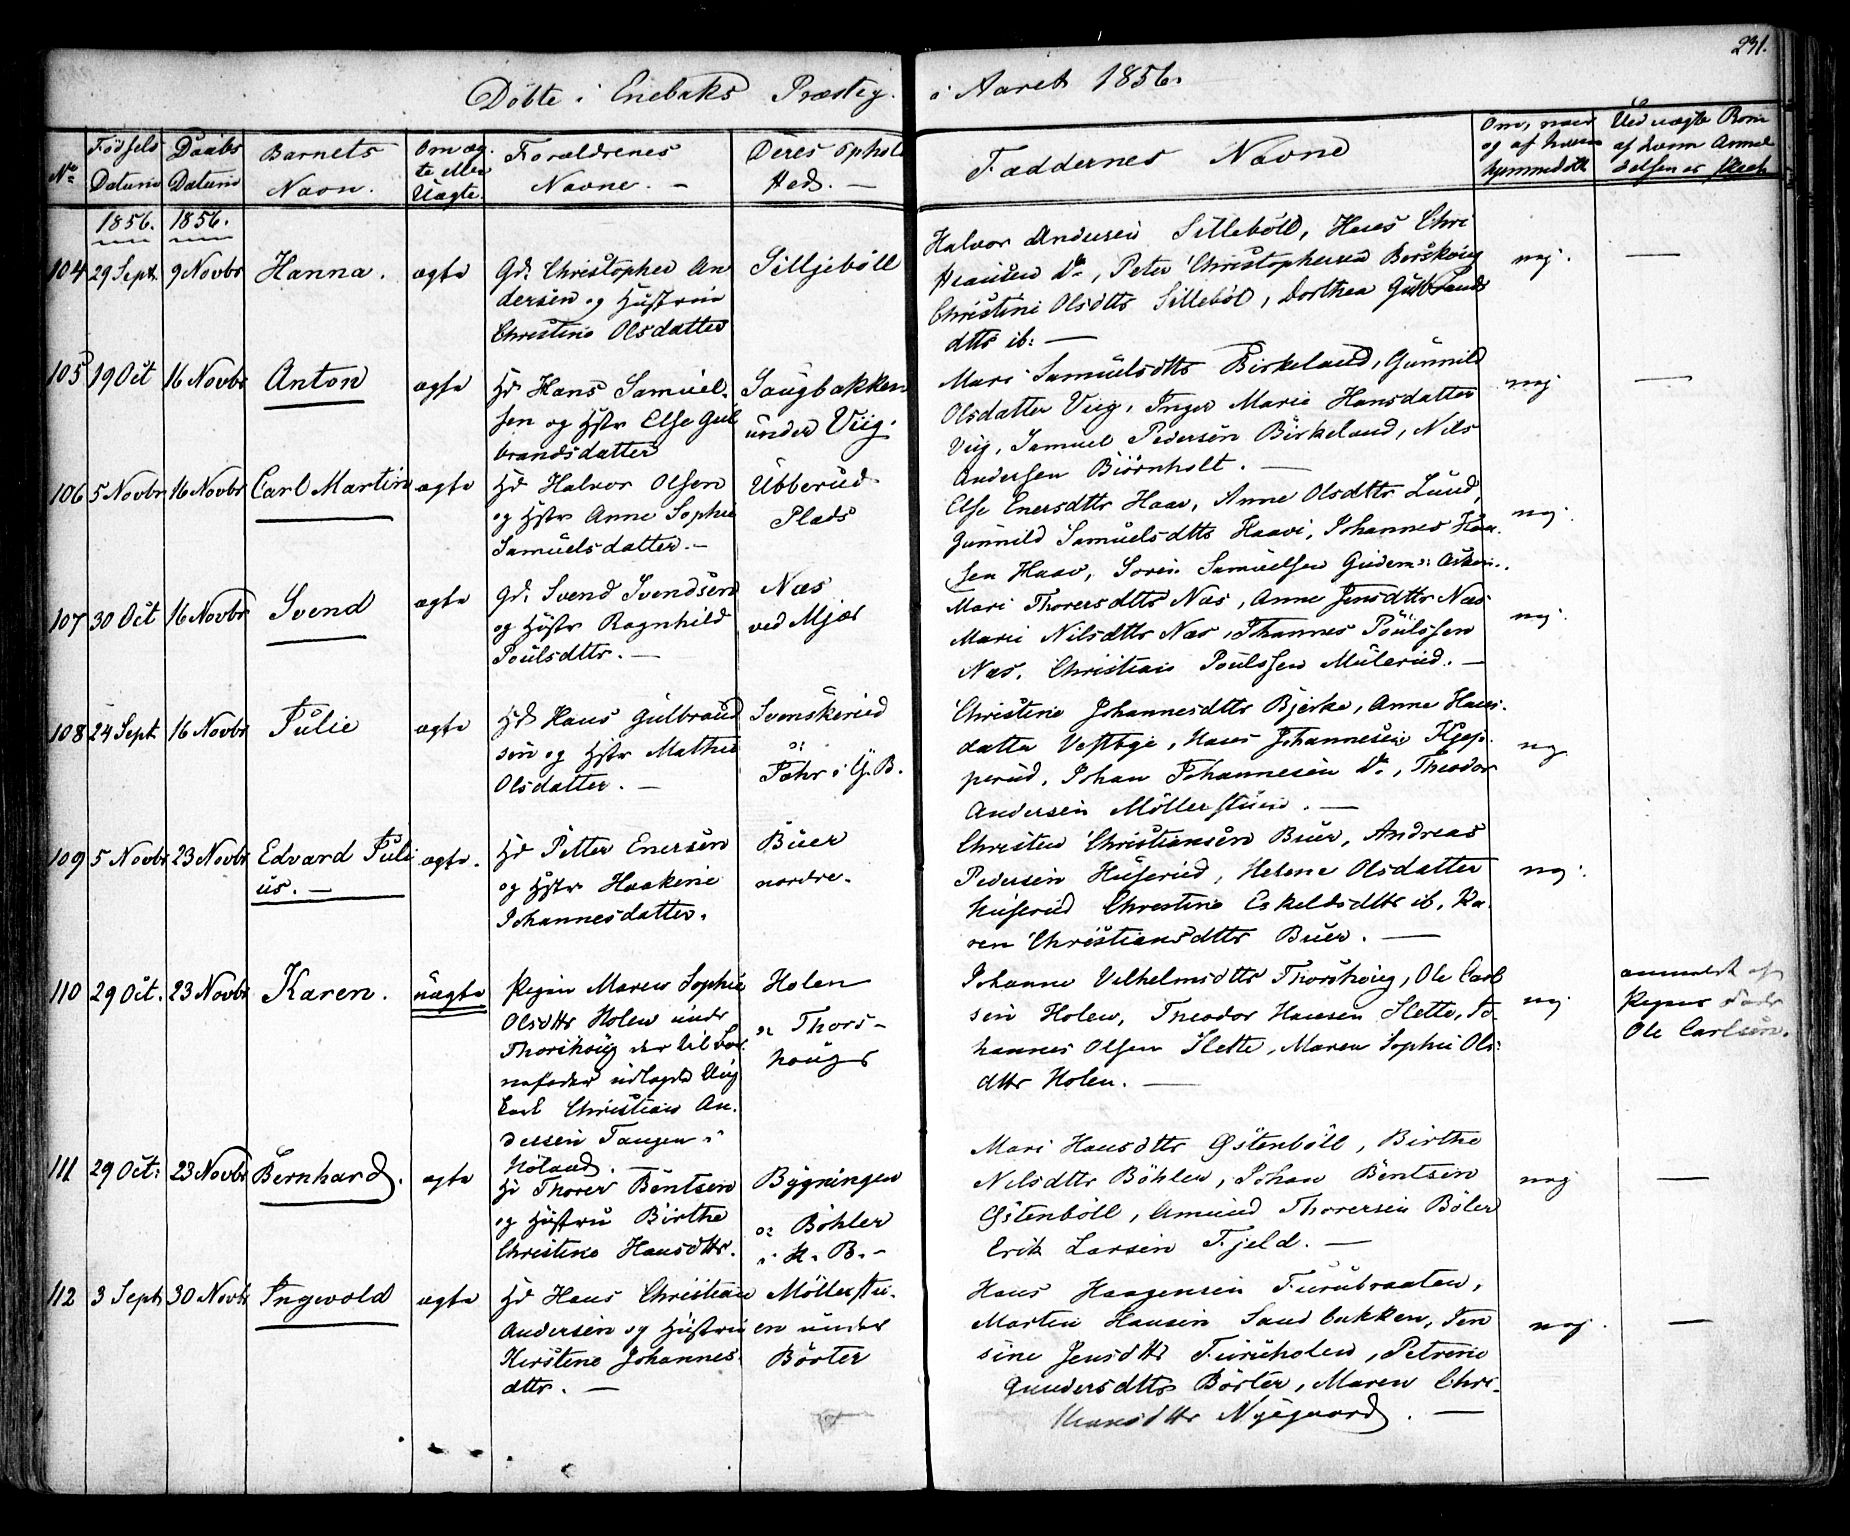 231.
Döbte i Enebaks Præsteg. i Aaret 1856.
No Fødsels Datum Daabs Datum Barnets Navn. Om ægte eller Uægte. Forældrenes Navne. — Deres Ophold Sted. — Faddernes Navne
1856. 1856.
104 29 Sept. 9 Novbr Hanna. ægte Gd. Christopher An Silljeböll
dersen og Hustrue
Christine Olsdatter
Halvor Andersen Silleböll, Hans Chri
stiansen Do, Peter Christophersen Börskoug
Christine Olsdttr Silleböl, Dorthea Gulbrands
dttr ib: —
nej. —
105 19 Oct 16 Novbr Anton ægte Hd Hans Samuel- Saugbakken
sen og Hstr Else Gul under Viig.
brandsdatter
Mari Samuelsdttr Birkeland, Gunnild
Olsdatter Viig, Inger Marie Hansdatter
Viig, Samuel Pedersen Birkeland, Nils
Andersen Biörnholt. —
nej —
106 5 Novbr 16 Novbr Carl Martin ægte Hd Halvor Olsen Ubberud
og Hstr Anne Sophie Plads
Samuelsdatter. —
Else Enersdttr Haav, Anne Olsdttr Lund,
Gunnild Samuelsdttr Haavi, Johannes Han
sen Haav, Soren Samuelsen
nej.
107 30 Oct 16 Novbr Svend ægte Gd. Svend Svendsen Næs
og Hustr Ragnhild ved Mjær
Poulsdttr. —
Mari Thorersdttr Næs, Anne Jensdttr Næs
Marie Nilsdttr Næs, Johannes Poulssen
Næs, Christian Poulssen Mulerud. —
nej.
108 24 Sept 16 Novbr Julie ægte Hd Hans Gulbrand Svenskerud
sen og Hstr Mathie
Olsdatter. — i G. B.
Christine Johannesdttr Bjerke, Anne Hans-
datter Vestbye, Hans Johannesen Kjep-
perud, Johan Johannesen Do, Theodor
Andersen Möllerstuen. —
nej
109 5 Novbr 23 Novbr Edvard Juli ægte. Hd Petter Enersen Buer
us. — og Hstr Haakene nordre.
Johannesdatter.
Christen Christiansen Buer, Andreas
Pedersen Huserud, Helene Olsdatter
Huserud Christine Eskeldsdttr ib, Ka-
ren Christiansdttr Buer. —
nej.
110 29 Oct. 23 Novbr Karen. uægte Pigen Maren Sophie Holen
Olsdttr Holen under Thors-
Thorshoug der til Bar houg
nefader udlagde Ung
karl Christian An-
dersen Tangen i
Höland. —
Johanne Vilhelmsdttr Thorshoug, Ole Carl
sen Holen, Theodor Hansen Slette, Jo-
hannes Olsen Slette, Maren Sophie Ols-
dttr Holen. —
nej
anmeldt af
Pigens Fader
Ole Carlsen.
111 29 Oct: 23 Novbr Bernhard. ægte Hd Thorer Bentsen Bygningen
og Hustru Birthe Böhler
Christine Hansdttr. i H. B. —
Mari Hansdttr Östenböll, Birthe
Nilsdttr Böhler, Johan Bentsen
Östenböll, Amund Thorersen Böler
Erik Larsen Fjeld. —
nej —
112 3 Sept 30 Novbr Ingvold ægte Hd Hans Christian Möllerstu-
Andersen og Hustru en under
Kirstine Johannes Börter
dttr. —
Hans Haagensen Furubraaten,
Marten Hansen Sandbakken, Jen
sine Jensdttr Furuholen, Petrine
Gundersdttr Börter, Maren Chri-
stiansdttr Nyegaard. —
nej. —